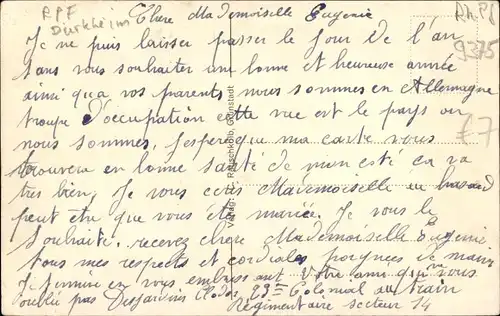 RPF
Dürkheim
Rh.Pf.
9375
77
Chere Mademoiselle Eugenie
Je ne puis laisser passer le jour de l'an
sans vous souhaiter une bonne et heureuse année
ainsi qu'a vos parents nous sommes en Allemagne
troupe d'occupation cette vue est le pays ou
nous sommes. J'espere que ma carte vous
trouvera en bonne santé de mon coté ca va
tres bien, Je vous ecris Mademoiselle au hasard
peut etre que vous étes mariée. Je vous le
souhaite. recevez chere Mademoiselle Eugenie
tous mes respects et cordiales poignees de mains
Je termine en vous embrassant Votre ami qui ne vous
oublie pas Desjardins 23me Colonial au train
Régimentaire secteur 14
Verlag: Grünstadt